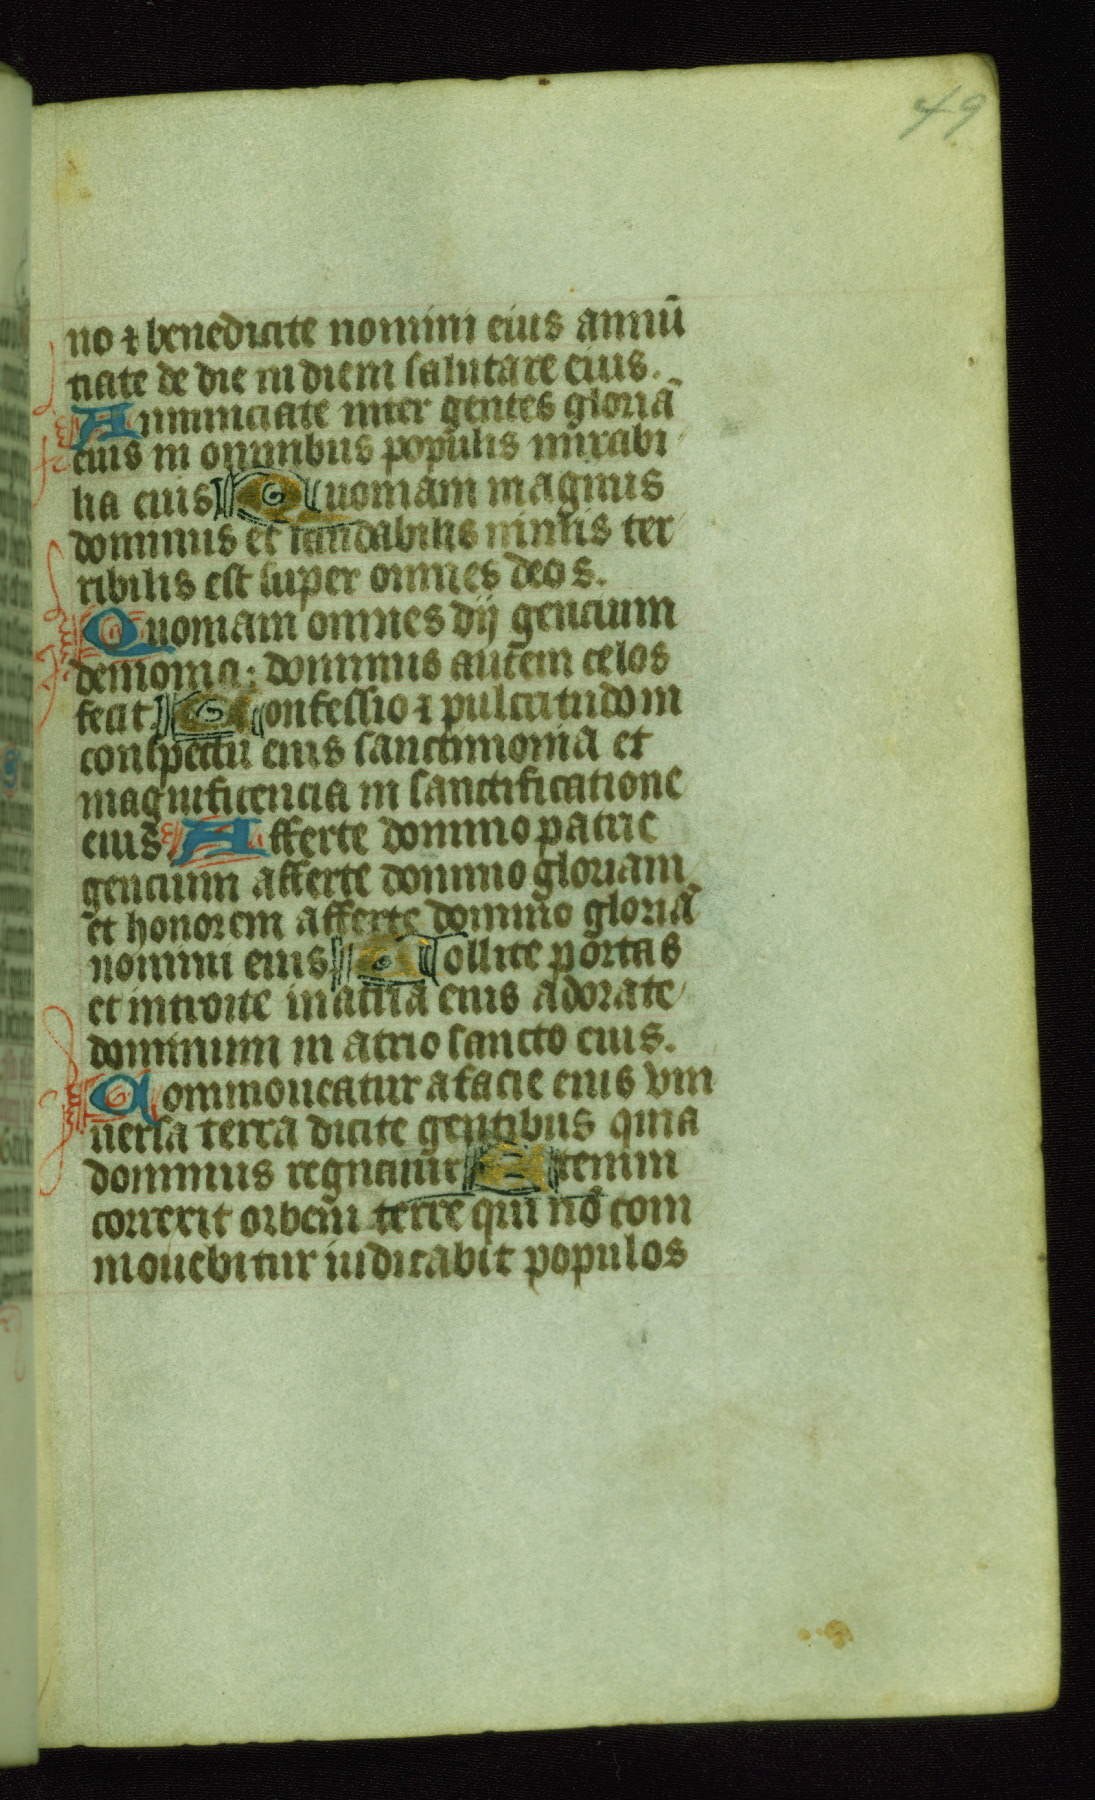 49
no ⁊ benedicite nomini eius annū
ciate de die in diem salutare eius.
Annunciate inter gentes gloriā
eius in omnibus populis mirabi
lia eius Quoniam magnus
dominus et laudabilis nimis ter
ribilis est super omnes deos.
Quoniam omnes dij gencium
demonia: dominus autem celos
fecit Confessio ⁊ pulcritudo in
conspectu eius sanctimonia et
magnificencia in sanctificatione
eius Afferte domino patrie
gencium afferte domino gloriam
et honorem afferte domino gloriā
nomini eius Tollite portas
et introite in atria eius adorate
dominum in atrio sancto eius.
Commoueatur a facie eius vni
uersa terra dicite gentibus quia
dominus regnauit Etenim
correxit orbem terre qui nō com
mouebitur iudicabit populos